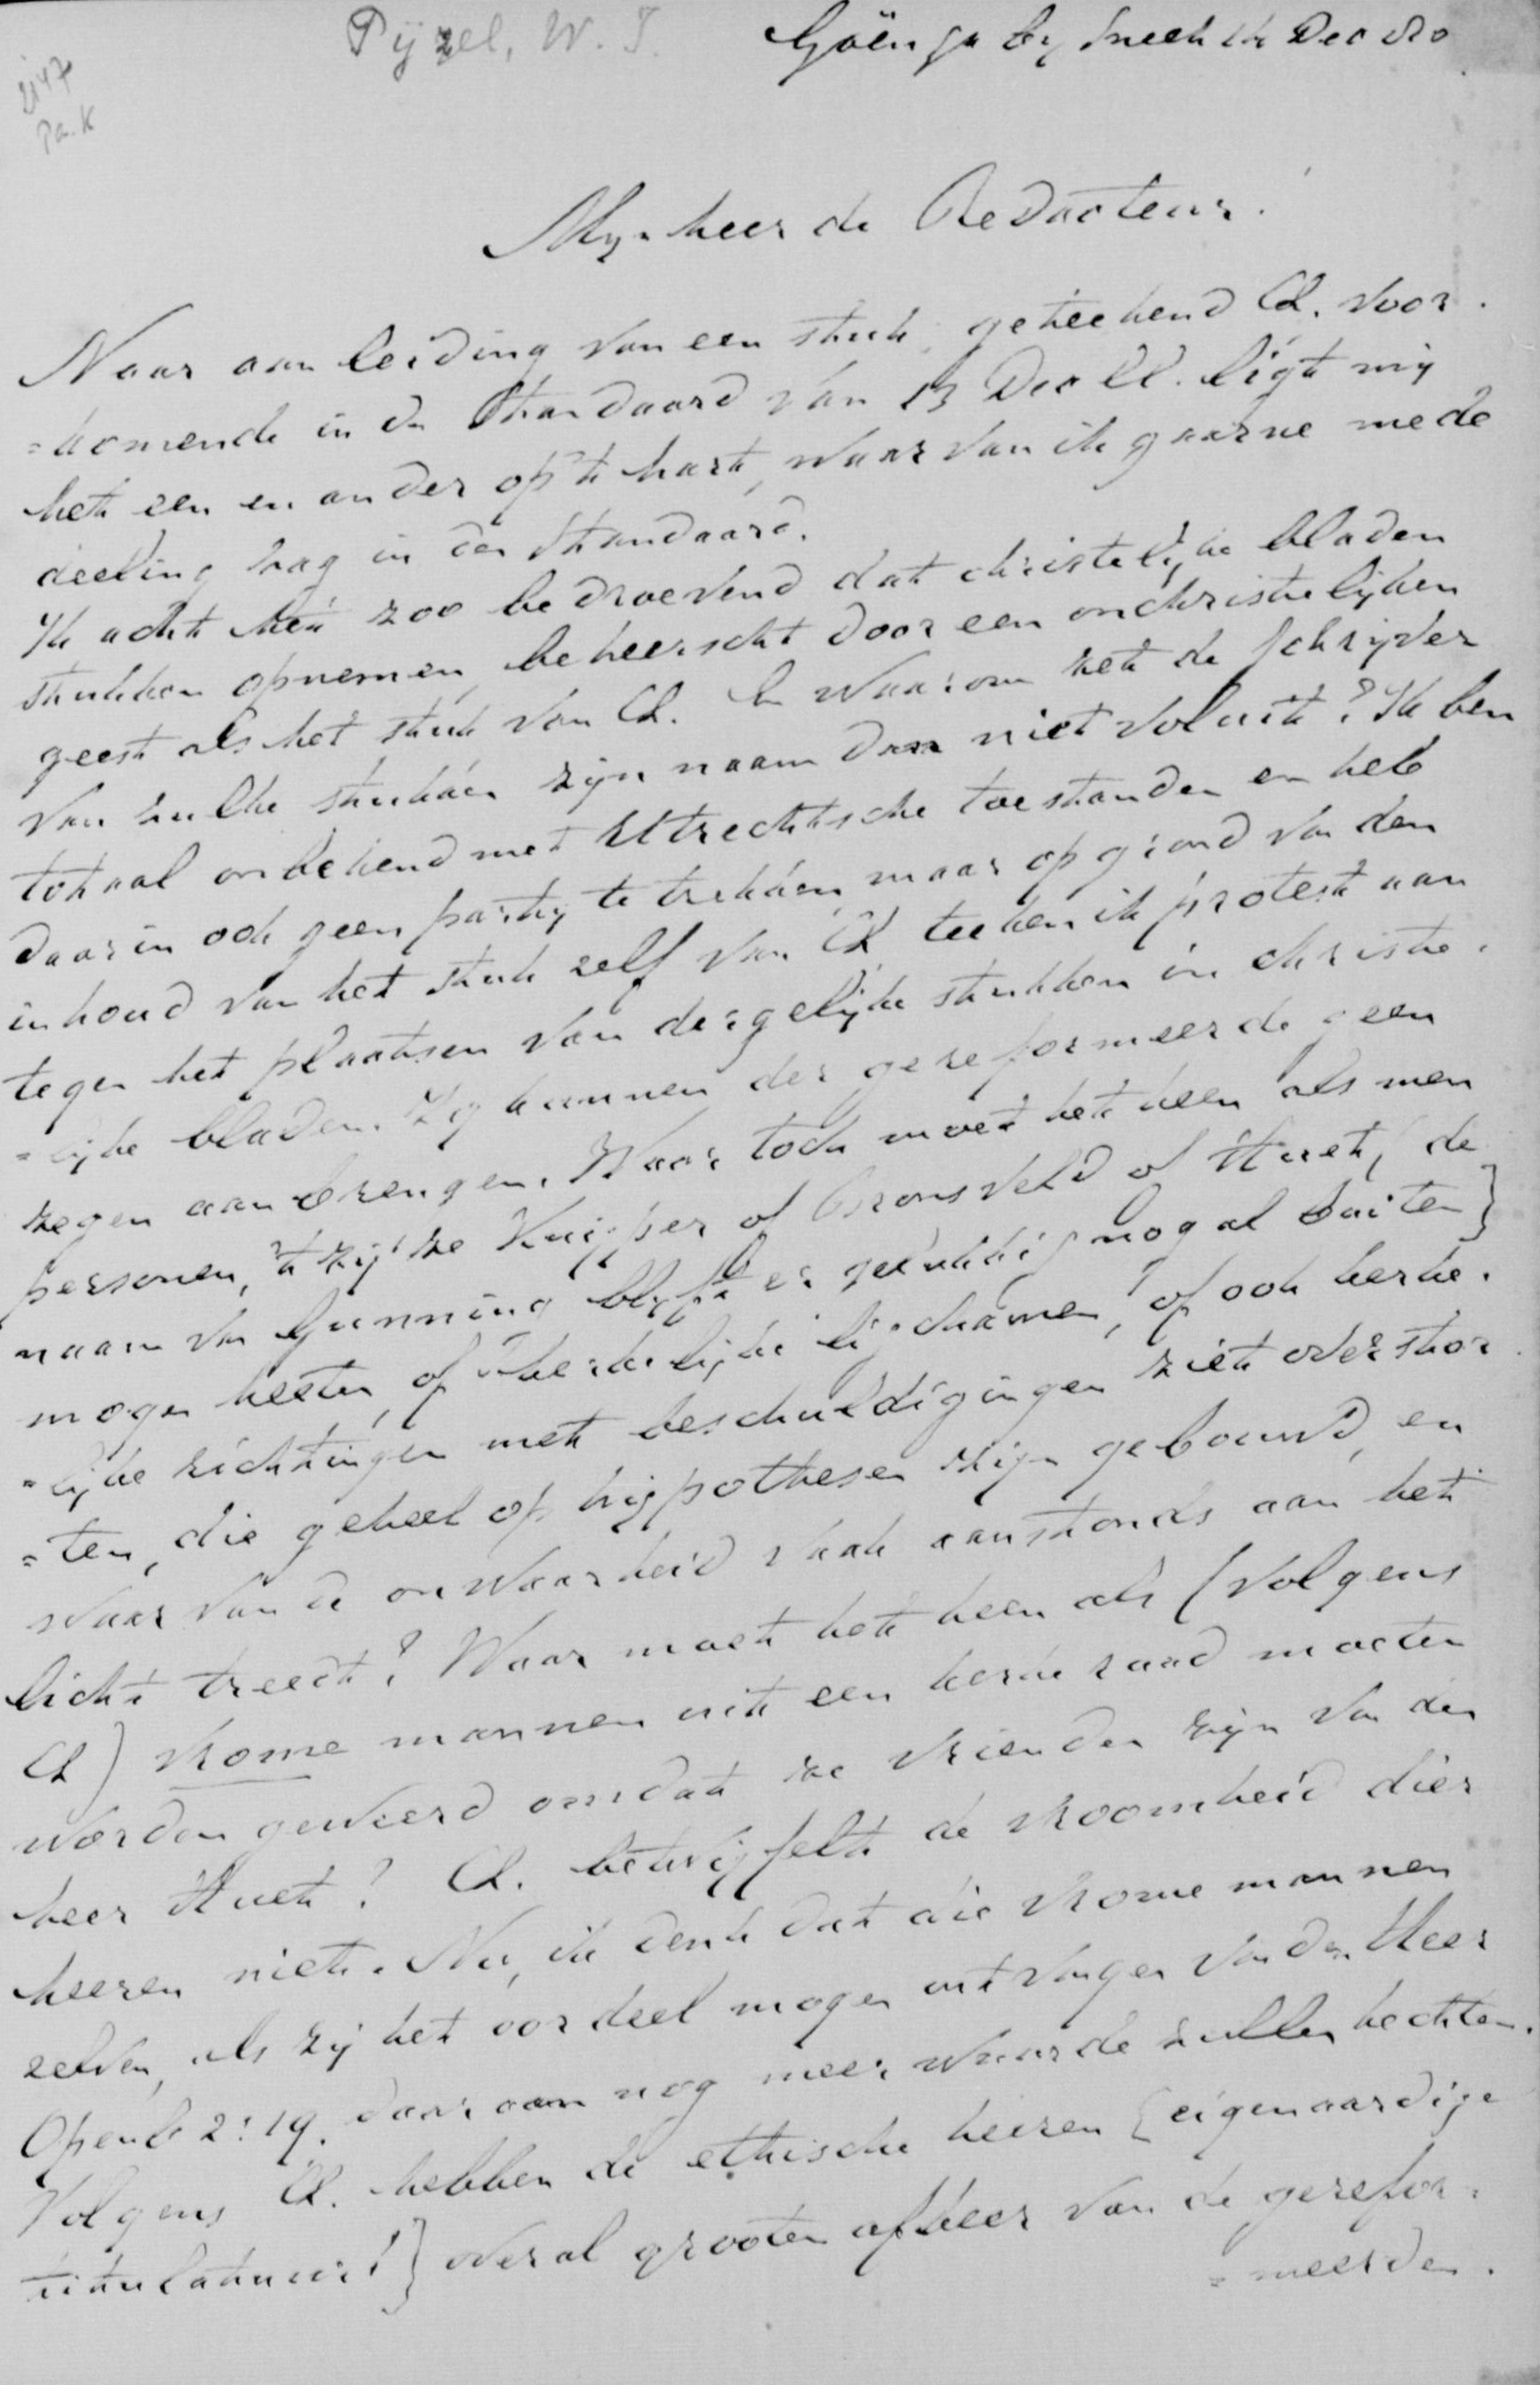 Pijzel, W. J.
Goënga by Sneek 14 Dec
2147
Pa. K
Mynheer de Redacteur!
Naar aanleiding van een stuk, geteekend Q. voor-
=komende in de Standaard van 13 Dec ll. ligt mij
het een en ander op 't hart, waarvan ik gaarne mede
deeling zag in den Standaard.
Ik acht het zoo bedroevend dat christelijke bladen
stukken opnemen, beheerscht door een onchristelijken
geest als het stuk van Q. En waarom zet de schrijver
van zulke stukken zijn naam dan niet voluit? Ik ben
totaal onbekend met Utrechtsche toestanden en heb
daarin ook geen partij te trekken, maar op grond van den
inhoud van het stuk zelf van Q. teeken ik protest aan
tegen het plaatsen van dergelijke stukken in christe-
=lijke bladen. Zij kunnen der gereformeerde geen
zegen aanbrengen. Waar toch moet het heen als men
personen, 't zij ze Kuijper of Bronsveld of Huet, (de
naam van Gunning blijft er gelukkig nogal buiten)
mogen heeten, of kerkelijke ligchamen, of ook kerke-
=lijke richtingen met beschuldigingen ziet overstor-
=ten, die geheel op hijpothesen zijn gebouwd, en
waarvan de onwaarheid vaak aanstonds aan het
licht treedt? Waar moet het heen als (volgens
Q) vrome mannen uit een kerkeraad moeten
worden geweerd omdat ze vrienden zijn van den
heer Huet? Q. betwijfelt de vroomheid dier
heeren niet. Nu, ik denk dat die vrome mannen
zelven, als zij het oordeel mogen ontvangen van den Heer
Openb 2:19. daaraan nog meer waarde zullen hechten.
Volgens Q. hebben de ethische heeren (eigenaardige
titulatuur!) veral grooten afkeer van de gerefor-
=meerden.